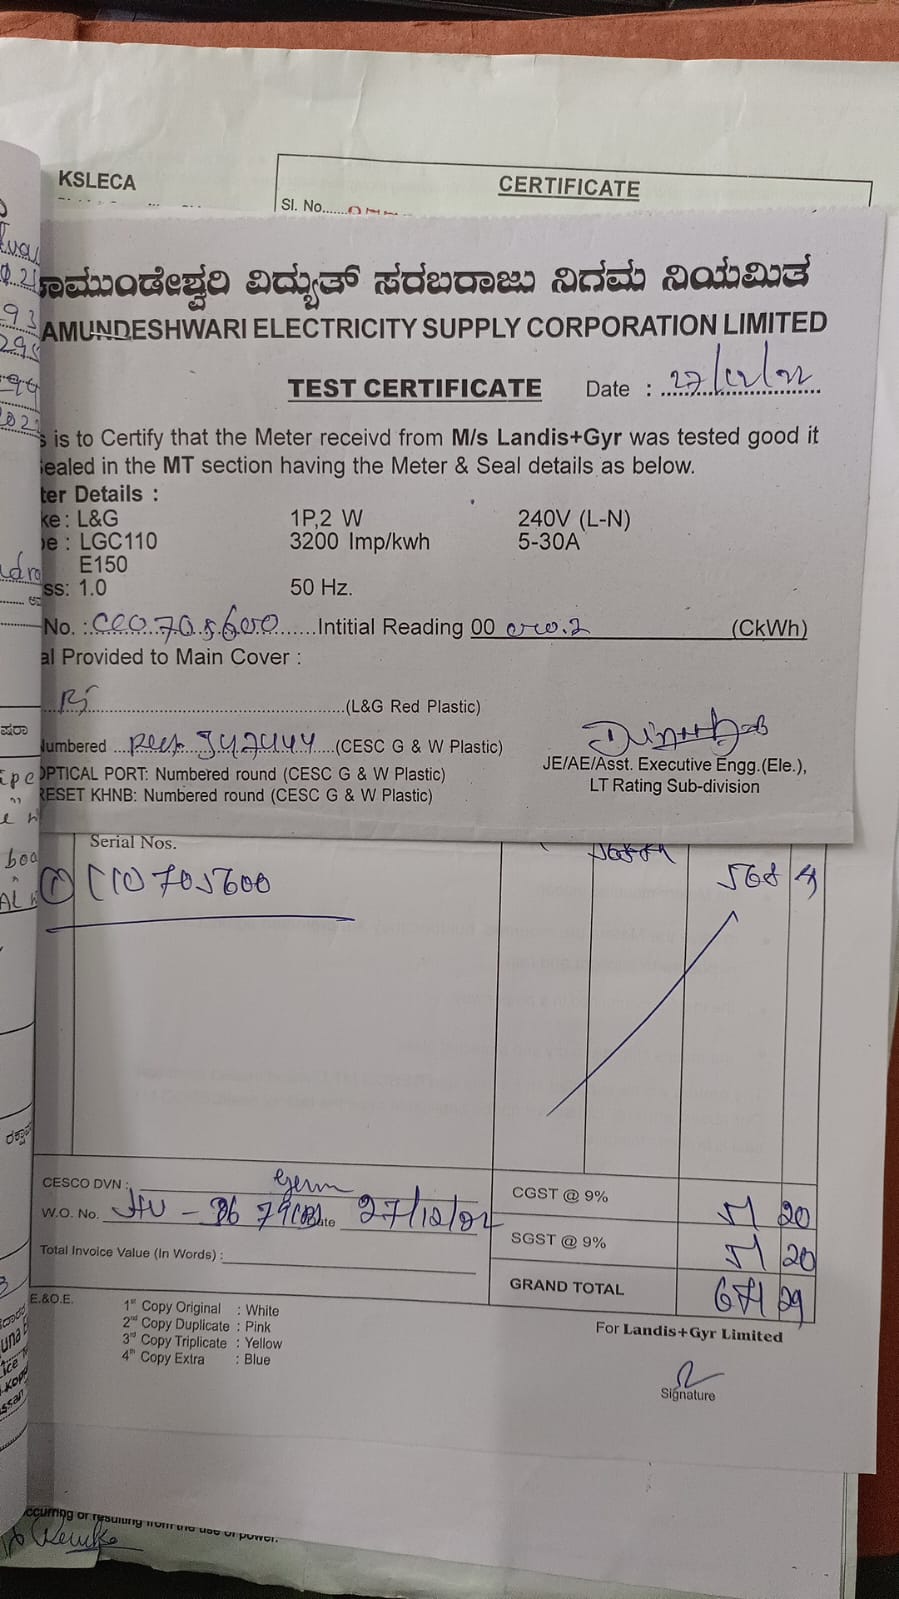 KSLECA
CERTIFICATE
Sl. No......
ಚಾಮುಂಡೇಶ್ವರಿ ವಿದ್ಯುತ್ ಸರಬರಾಜು ನಿಗಮ ನಿಯಮಿತ
AMUNDESHWARI ELECTRICITY SUPPLY CORPORATION LIMITED
TEST CERTIFICATE Date : 27/12/22
s is to Certify that the Meter receivd from M/s Landis+Gyr was tested good it
ealed in the MT section having the Meter & Seal details as below.
ter Details :
ke : L&G 1P,2 W 240V (L-N)
e : LGC110 3200 Imp/kwh 5-30A
E150
ss: 1.0 50 Hz.
No. : Intitial Reading 00 (CkWh)
al Provided to Main Cover :
(L&G Red Plastic)
umbered (CESC G & W Plastic)
OPTICAL PORT: Numbered round (CESC G & W Plastic)
RESET KHNB: Numbered round (CESC G & W Plastic)
JE/AE/Asst. Executive Engg.(Ele.),
LT Rating Sub-division
Serial Nos.
705600
568 4
CESCO DVN :
W.O. No. Date 27/12/22
Total Invoice Value (In Words) :
CGST @ 9% 51 20
SGST @ 9% 51 20
GRAND TOTAL 671 29
E.&O.E.
1st Copy Original : White
2nd Copy Duplicate : Pink
3rd Copy Triplicate : Yellow
4th Copy Extra : Blue
For Landis+Gyr Limited
Signature
ccurring or resulting from the use of power.